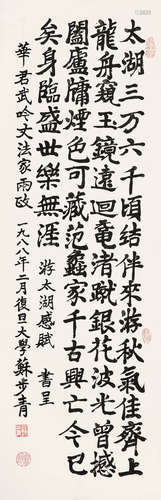 太湖三万六千頃结伴來游秋氣佳齊上
龍舟窺玉鏡遠迴黿渚蹴銀花波光曾撼
闔廬牖煙色可藏范蠡家千古興亡今已
矣身臨盛世樂無涯 游太湖感賦 書呈
華君武吟丈法家兩政 一九八八年二月復旦大學蘇步青